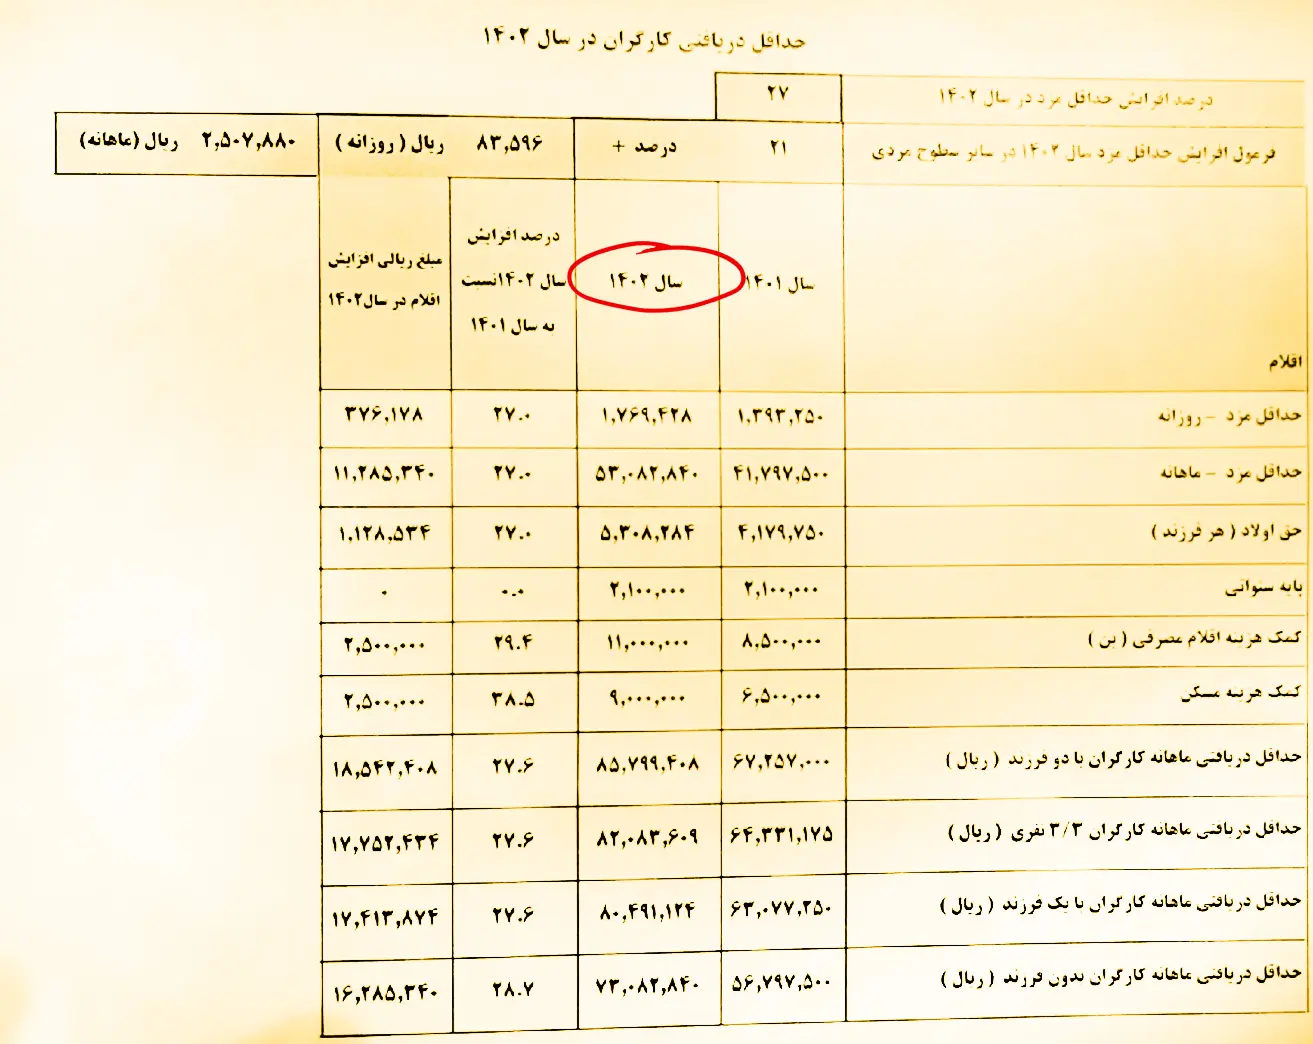 حداقل دریافتی کارگران در سال ۱۴۰۲
درصد افزایش حداقل مزد در سال ۱۴۰۲ ۲۷
فرمول افزایش حداقل مزد سال ۱۴۰۲ در سایر سطوح مزدی ۲۱ درصد + ۸۳,۵۹۶ ریال ( روزانه ) ۲,۵۰۷,۸۸۰ ریال (ماهانه)
اقلام
سال ۱۴۰۱
سال ۱۴۰۲
درصد افزایش
سال ۱۴۰۲نسبت
به سال ۱۴۰۱
مبلغ ریالی افزایش
اقلام در سال۱۴۰۲
حداقل مزد - روزانه ۱,۳۹۳,۲۵۰ ۱,۷۶۹,۴۲۸ ۲۷.۰ ۳۷۶,۱۷۸
حداقل مزد - ماهانه ۴۱,۷۹۷,۵۰۰ ۵۳,۰۸۲,۸۴۰ ۲۷.۰ ۱۱,۲۸۵,۳۴۰
حق اولاد ( هر فرزند ) ۴,۱۷۹,۷۵۰ ۵,۳۰۸,۲۸۴ ۲۷.۰ ۱,۱۲۸,۵۳۴
پایه سنواتی ۲,۱۰۰,۰۰۰ ۲,۱۰۰,۰۰۰ ۰.۰ ۰
کمک هزینه اقلام مصرفی ( بن ) ۸,۵۰۰,۰۰۰ ۱۱,۰۰۰,۰۰۰ ۲۹.۴ ۲,۵۰۰,۰۰۰
کمک هزینه مسکن ۶,۵۰۰,۰۰۰ ۹,۰۰۰,۰۰۰ ۳۸.۵ ۲,۵۰۰,۰۰۰
حداقل دریافتی ماهانه کارگران با دو فرزند ( ریال ) ۶۷,۲۵۷,۰۰۰ ۸۵,۷۹۹,۴۰۸ ۲۷.۶ ۱۸,۵۴۲,۴۰۸
حداقل دریافتی ماهانه کارگران ۳/۳ نفری ( ریال ) ۶۴,۳۳۱,۱۷۵ ۸۲,۰۸۳,۶۰۹ ۲۷.۶ ۱۷,۷۵۲,۴۳۴
حداقل دریافتی ماهانه کارگران با یک فرزند ( ریال ) ۶۳,۰۷۷,۲۵۰ ۸۰,۴۹۱,۱۲۴ ۲۷.۶ ۱۷,۴۱۳,۸۷۴
حداقل دریافتی ماهانه کارگران بدون فرزند ( ریال ) ۵۶,۷۹۷,۵۰۰ ۷۳,۰۸۲,۸۴۰ ۲۸.۷ ۱۶,۲۸۵,۳۴۰